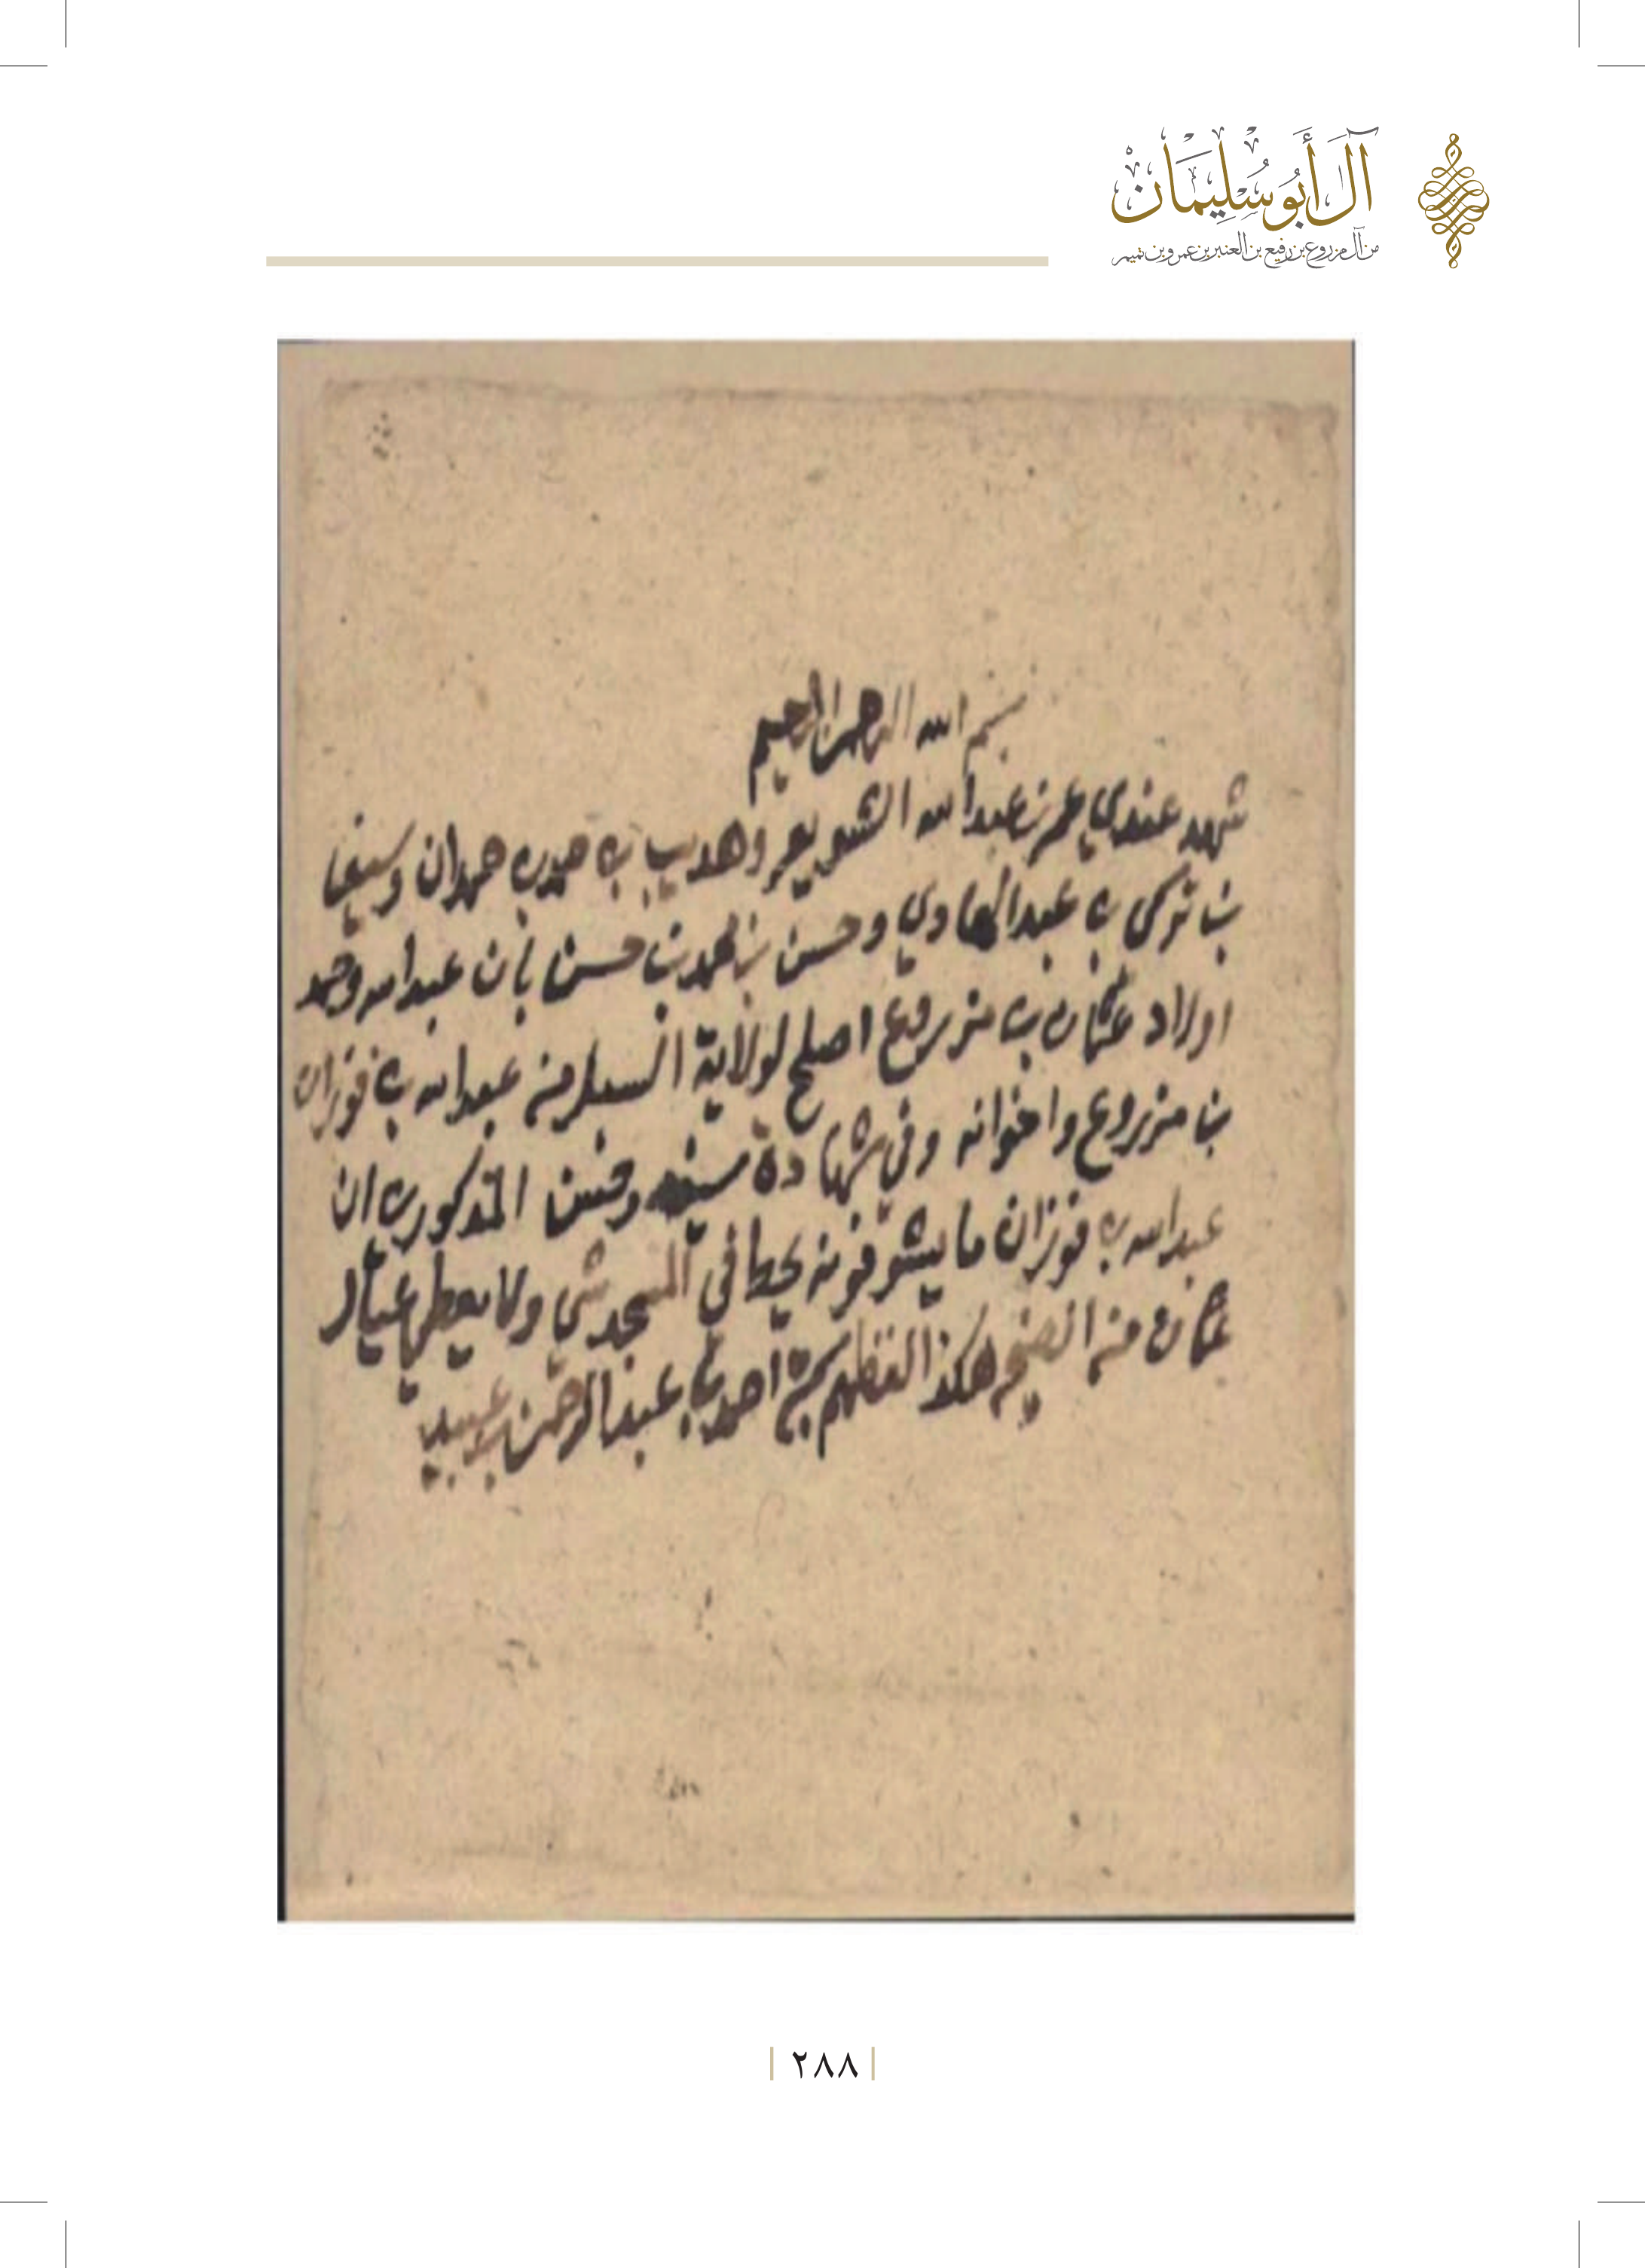 آل أبو سليمان
من آل مزروع بن رفيع بن العنبر بن عمرو بن تميم
بسم الله الرحمن الرحيم
شهد عندي عمر بن عبدالله الشويعر وهديب بن حمد بن حمدان و
بن تركي بن عبدالهادي وحسن بن محمد بن حسن بان عبدالله وحمد
اولاد عثمان بن مزروع اصلح لولاية السبيل من عبدالله بن فوزان
بن مزروع واخوانه وفي شهادة وحسن المذكورين ان
عبدالله بن فوزان ما يشوفونه يحط في المسجد شي ولا يعطي عيال
عثمان منه هكذا لفظهم كتبه احمد بن عبدالرحمن بن عبيد
٢٨٨